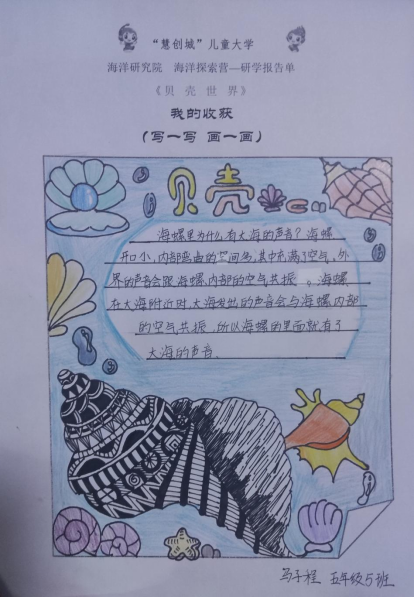 “慧创城”儿童大学
海洋研究院 海洋探索营—研学报告单
《贝壳世界》
我的收获
(写一写 画一画)
贝壳
海螺里为什么有大海的声音?海螺
开口小,内部弯曲的空间多,其中充满了空气,外
界的声音会跟海螺内部的空气共振。海螺
在大海附近时,大海发出的声音会与海螺内部
的空气共振,所以海螺的里面就有了
大海的声音.
马子程 五年级5班